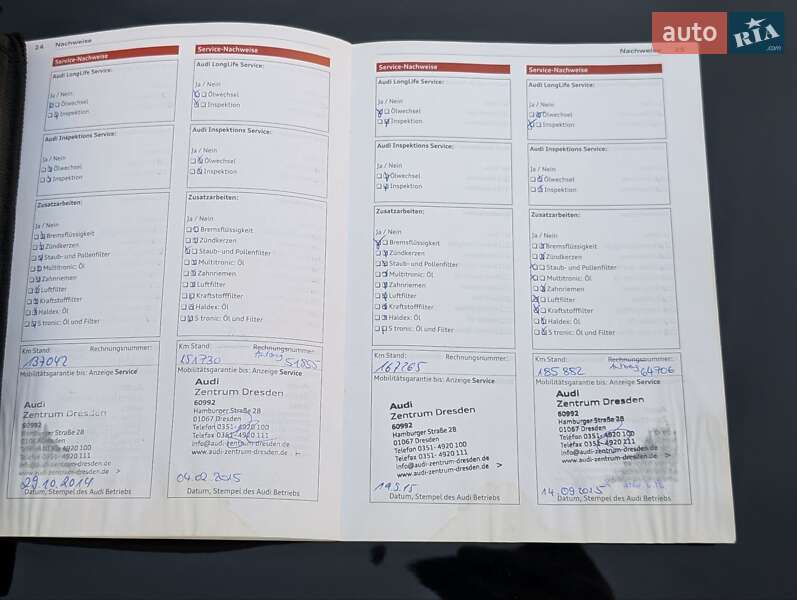 auto RIA .com
24 Nachweise
Service-Nachweise
Audi LongLife Service:
Ja / Nein
Ölwechsel
Inspektion
Audi Inspektions Service:
Ja / Nein
Ölwechsel
Inspektion
Zusatzarbeiten:
Ja / Nein
Bremsflüssigkeit
Zündkerzen
Staub- und Pollenfilter
Multitronic: Öl
Zahnriemen
Luftfilter
Kraftstofffilter
Haldex: Öl
S tronic: Öl und Filter
Km Stand: Rechnungsnummer:
137042
Mobilitätsgarantie bis: Anzeige Service
Audi
Zentrum Dresden
60992
Hamburger Straße 28
01067 Dresden
4920 100
4920 111
www.audi-zentrum-dresden.de >
29.10.2014
Datum, Stempel des Audi Betriebs
Service-Nachweise
Audi LongLife Service:
Ja / Nein
Ölwechsel
Inspektion
Audi Inspektions Service:
Ja / Nein
Ölwechsel
Inspektion
Zusatzarbeiten:
Ja / Nein
Bremsflüssigkeit
Zündkerzen
Staub- und Pollenfilter
Multitronic: Öl
Zahnriemen
Luftfilter
Kraftstofffilter
Haldex: Öl
S tronic: Öl und Filter
Km Stand: Rechnungsnummer:
151730 Auftrag 51855
Mobilitätsgarantie bis: Anzeige Service
Audi
Zentrum Dresden
60992
Hamburger Straße 28
01067 Dresden
Telefon 0351-4920 100
Telefax 0351-4920 111
info@audi-zentrum-dresden.de
www.audi-zentrum-dresden.de
04.02.2015
Datum, Stempel des Audi Betriebs
Nachweise 25
Service-Nachweise
Audi LongLife Service:
Ja / Nein
Ölwechsel
Inspektion
Audi Inspektions Service:
Ja / Nein
Ölwechsel
Inspektion
Zusatzarbeiten:
Ja / Nein
Bremsflüssigkeit
Zündkerzen
Staub- und Pollenfilter
Multitronic: Öl
Zahnriemen
Luftfilter
Kraftstofffilter
Haldex: Öl
S tronic: Öl und Filter
Km Stand: Rechnungsnummer:
167265
Mobilitätsgarantie bis: Anzeige Service
Audi
Zentrum Dresden
60992
Hamburger Straße 28
01067 Dresden
Telefon 0351-4920 100
Telefax 0351-4920 111
info@audi-zentrum-dresden.de
www.audi-zentrum-dresden.de >
19.5.15
Datum, Stempel des Audi Betriebs
Service-Nachweise
Audi LongLife Service:
Ja / Nein
Ölwechsel
Inspektion
Audi Inspektions Service:
Ja / Nein
Ölwechsel
Inspektion
Zusatzarbeiten:
Ja / Nein
Bremsflüssigkeit
Zündkerzen
Staub- und Pollenfilter
Multitronic: Öl
Zahnriemen
Luftfilter
Kraftstofffilter
Haldex: Öl
S tronic: Öl und Filter
Km Stand: Rechnungsnummer:
185882 Auftrag 64706
Mobilitätsgarantie bis: Anzeige Service
Audi
Zentrum Dresden
60992
Hamburger Straße 28
01067 Dresden
Telefon 0351-4920 100
Telefax 0351-4920 111
info@audi-zentrum-dresden.de
www.audi-zentrum-dresden.de >
14.09.2015
Datum, Stempel des Audi Betriebs